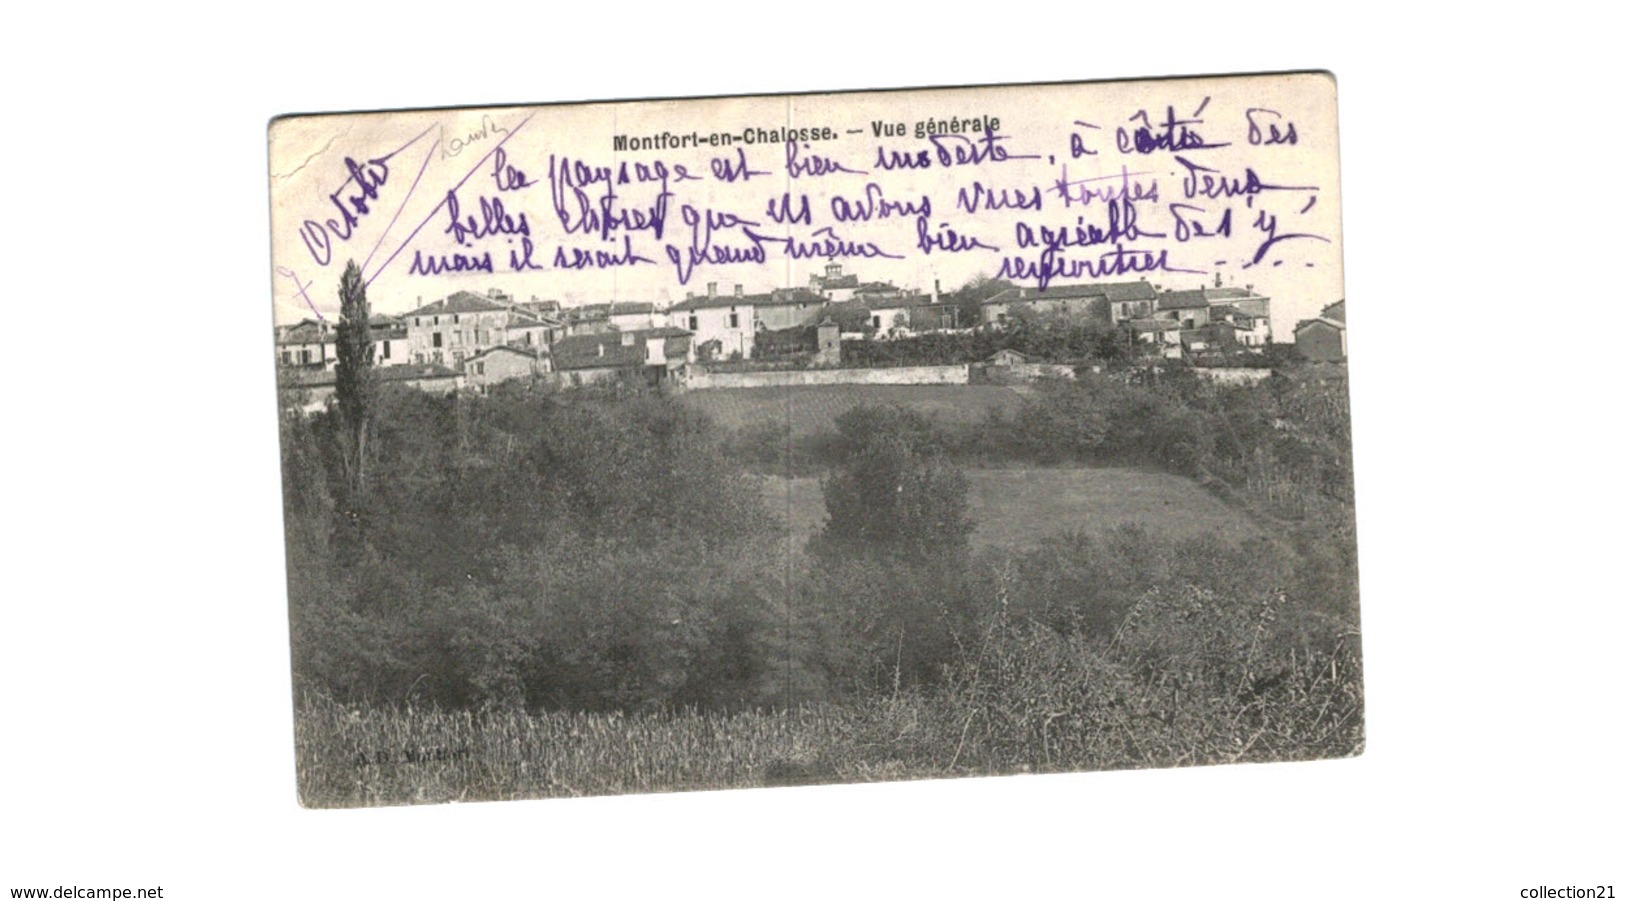 Montfort-en-Chalosse. — Vue générale
Landes
7 Octobre
Le paysage est bien modeste, à côté des
belles choses que ns avons vues toutes deux
mais il serait quand même bien agréable de s'y
rencontrer ....
A. D. Montfort
www.delcampe.net
collection21